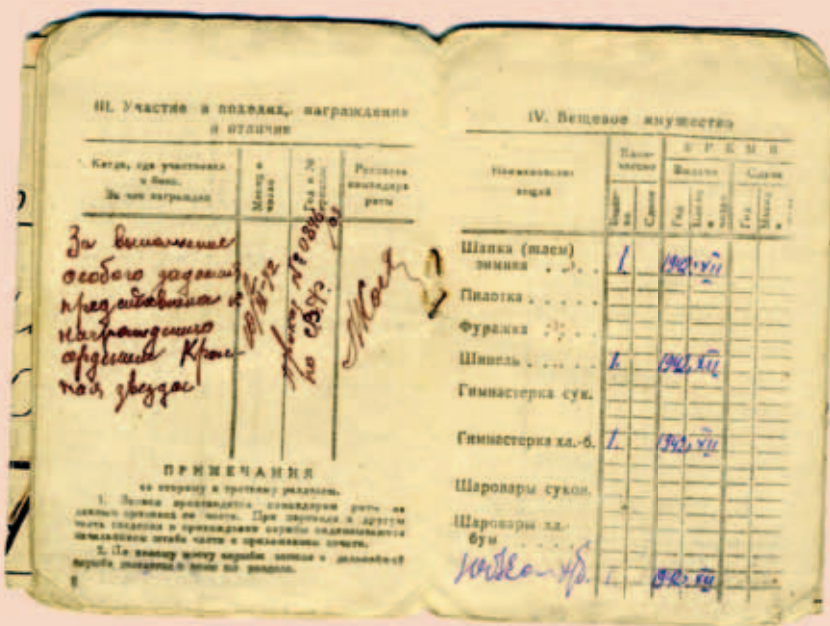 III. Участие в походах, награждения
и отличия
Когда, где участвовал
в боях.
За что награжден
Месяц и
число
Год и №
приказа
Роспись
командира
роты
За выполнение
особого задания
представлена к
награждению
орденом Крас-
ная звезда
Приказ № 0896
по СВФ
ПРИМЕЧАНИЯ
ко второму и третьему разделам.
1. Записи производятся командиром роты на
основании приказов по части. При переводе в другую
часть сведения о прохождении службы подписываются
начальником штаба части с приложением печати.
8
IV. Вещевое имущество
Наименование
вещей
ВРЕМЯ
Выдачи
Сдачи
Год
Месяц
Год
Месяц
Шапка (шлем)
зимняя . . . 1. 1942. XII
Пилотка . . . . .
Фуражка . . . .
Шинель . . . . . 1. 1942. XII
Гимнастерка сук.
Гимнастерка хл.-б. 1. 1942. XII
Шаровары сукон.
Шаровары хл.-
бум . . . .
1942. XII